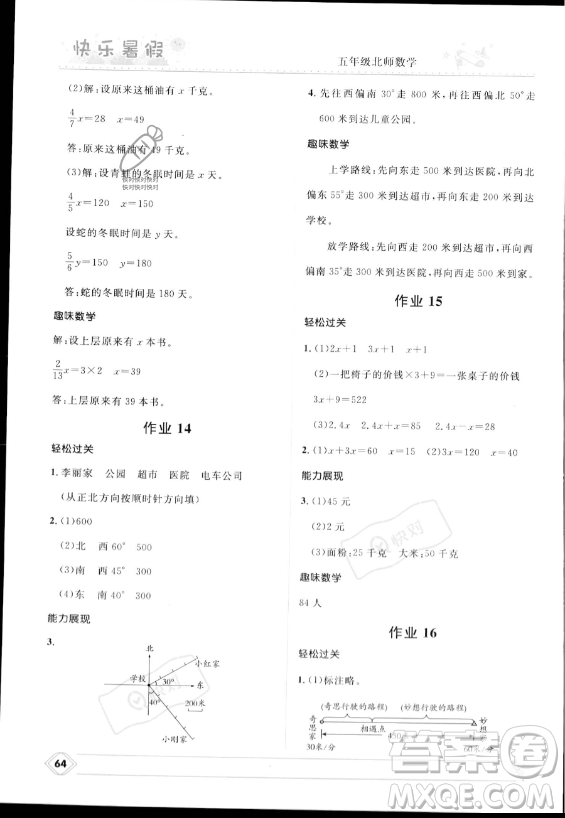 快乐暑假
五年级北师数学
(2)解:设原来这桶油有 x 千克。
4/7x=28 x=49
答:原来这桶油有 49 千克。
(3)解:设青蛙的冬眠时间是 x 天。
快对快对快对
快对快对快对
4/5x=120 x=150
设蛇的冬眠时间是 y 天。
5/6y=150 y=180
答:蛇的冬眠时间是 180 天。
趣味数学
解:设上层原来有 x 本书。
2/13x=3×2 x=39
答:上层原来有 39 本书。
作业 14
轻松过关
1. 李丽家 公园 超市 医院 电车公司
(从正北方向按顺时针方向填)
2. (1)600
(2)北 西60° 500
(3)南 西45° 300
(4)东 南40° 400
能力展现
3.
北
小红家
学校
30°
东
40°
200米
小明家
64
4. 先往西偏南 30°走 800 米,再往西偏北 50°走
600 米到达儿童公园。
趣味数学
上学路线:先向东走 500 米到达医院,再向北
偏东 55°走 300 米到达超市,再向东走 200 米到达
学校。
放学路线:先向西走 200 米到达超市,再向西
偏南 35°走 300 米到达医院,再向西走 500 米到家。
作业 15
轻松过关
1. (1)2x+1 3x+1 x+1
(2)一把椅子的价钱×3+9=一张桌子的价钱
3x+9=522
(3)2.4x 2.4x+x=85 x=25
2. (1)x+3x=60 (2)4x-x=120
能力展现
3. (1)45 元
(2)30 元
(3)面粉:25 千克 大米:50 千克
快对
趣味数学
84 人
作业 16
轻松过关
1. (1)标注略。
(奇思行驶的路程) (妙想行驶的路程)
奇思家
相遇点
妙想
30米/分
答案圈
MXQE.COM